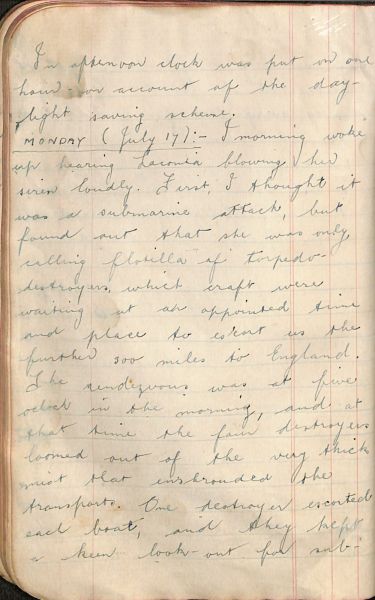 In afternoon clock was put on one
hour on account of the day-
light saving scheme.
MONDAY (July 17):- I morning woke
up hearing Laconia blowing her
siren loudly. First, I thought it
was a submarine attack, but
found out that she was only
calling flotilla of torpedo-
destroyers, which craft were
waiting at an appointed time
and place to escort us the
further 300 miles to England.
The rendezvous was at five
oclock in the morning, and at
that time the four destroyers
loomed out of the very thick
mist that enshrouded the
transports. One destroyer escorted
each boat, and they kept
a keen look-out for sub-